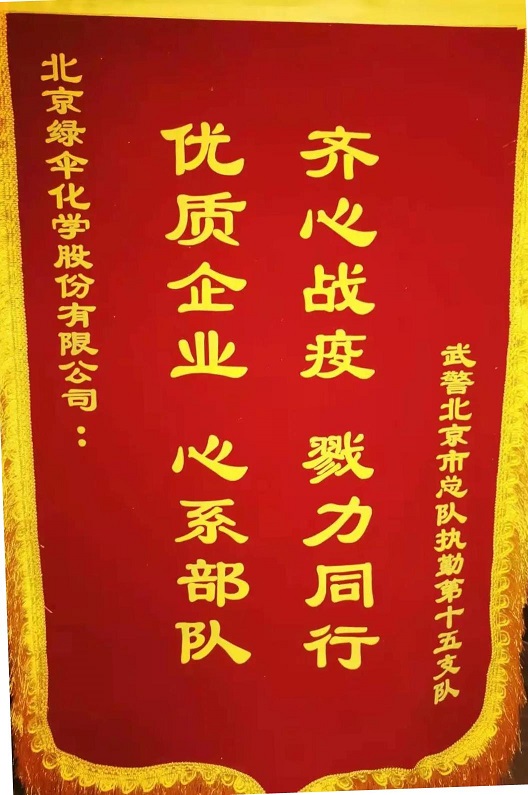 北京绿伞化学股份有限公司：
优质企业 心系部队
齐心战疫 戮力同行
武警北京市总队执勤第十五支队